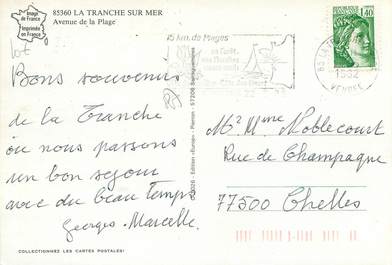 Image
de France
Imprimée
en France
85360 LA TRANCHE SUR MER
Avenue de la Plage
lot
Bons souvenirs
de la Tranche
où nous passons
un bon sejour
avec du beau temps
Georges-Marcelle
COLLECTIONNEZ LES CARTES POSTALES!
Edition «Europ» Pierron - 57206 Sarreguemines
15 km. de Plages
sa Forêt
85 LA TR
1982
VENDEE
1,40
Mr Mme Noblecourt
Rue de Champagne
77500 Chelles